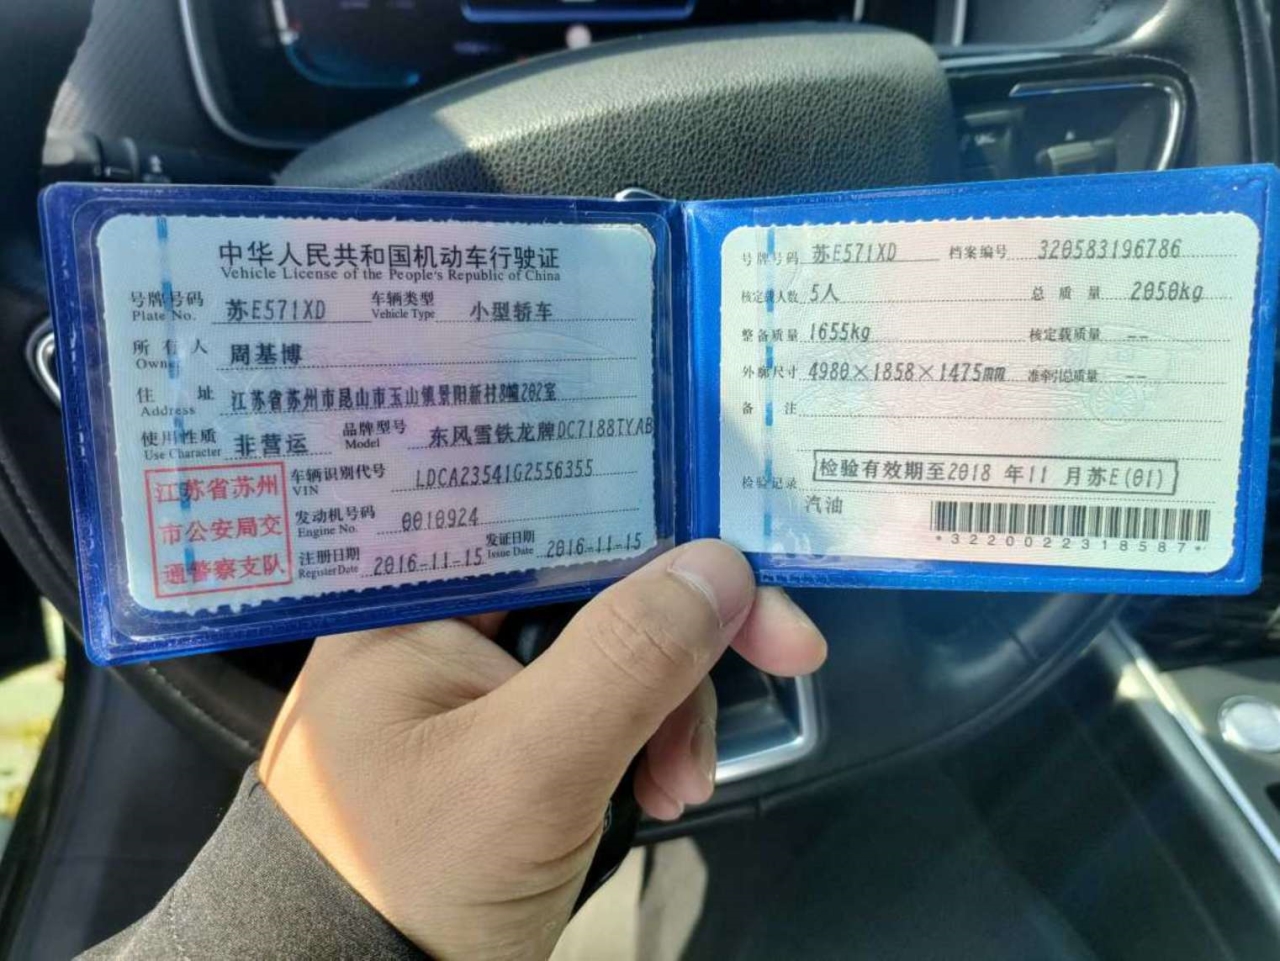 中华人民共和国机动车行驶证
Vehicle License of the People's Republic of China
号牌号码 Plate No. 苏E571XD 车辆类型 Vehicle Type 小型轿车
所有人 Owner 周基博
住址 Address 江苏省苏州市昆山市玉山镇景阳新村8幢202室
使用性质 Use Character 非营运 品牌型号 Model 东风雪铁龙牌DC7188TYAB
车辆识别代号 VIN LDCA23541G2556355
发动机号码 Engine No. 0010924
注册日期 Register Date 2016-11-15 发证日期 Issue Date 2016-11-15
江苏省苏州
市公安局交
通警察支队
号牌号码 苏E571XD 档案编号 320583196786
核定载人数 5人 总质量 2050kg
整备质量 1655kg 核定载质量 --
外廓尺寸 4980×1858×1475mm 准牵引总质量 --
备注
检验记录 检验有效期至2018 年11 月苏E(01)
汽油
*3220022318587*